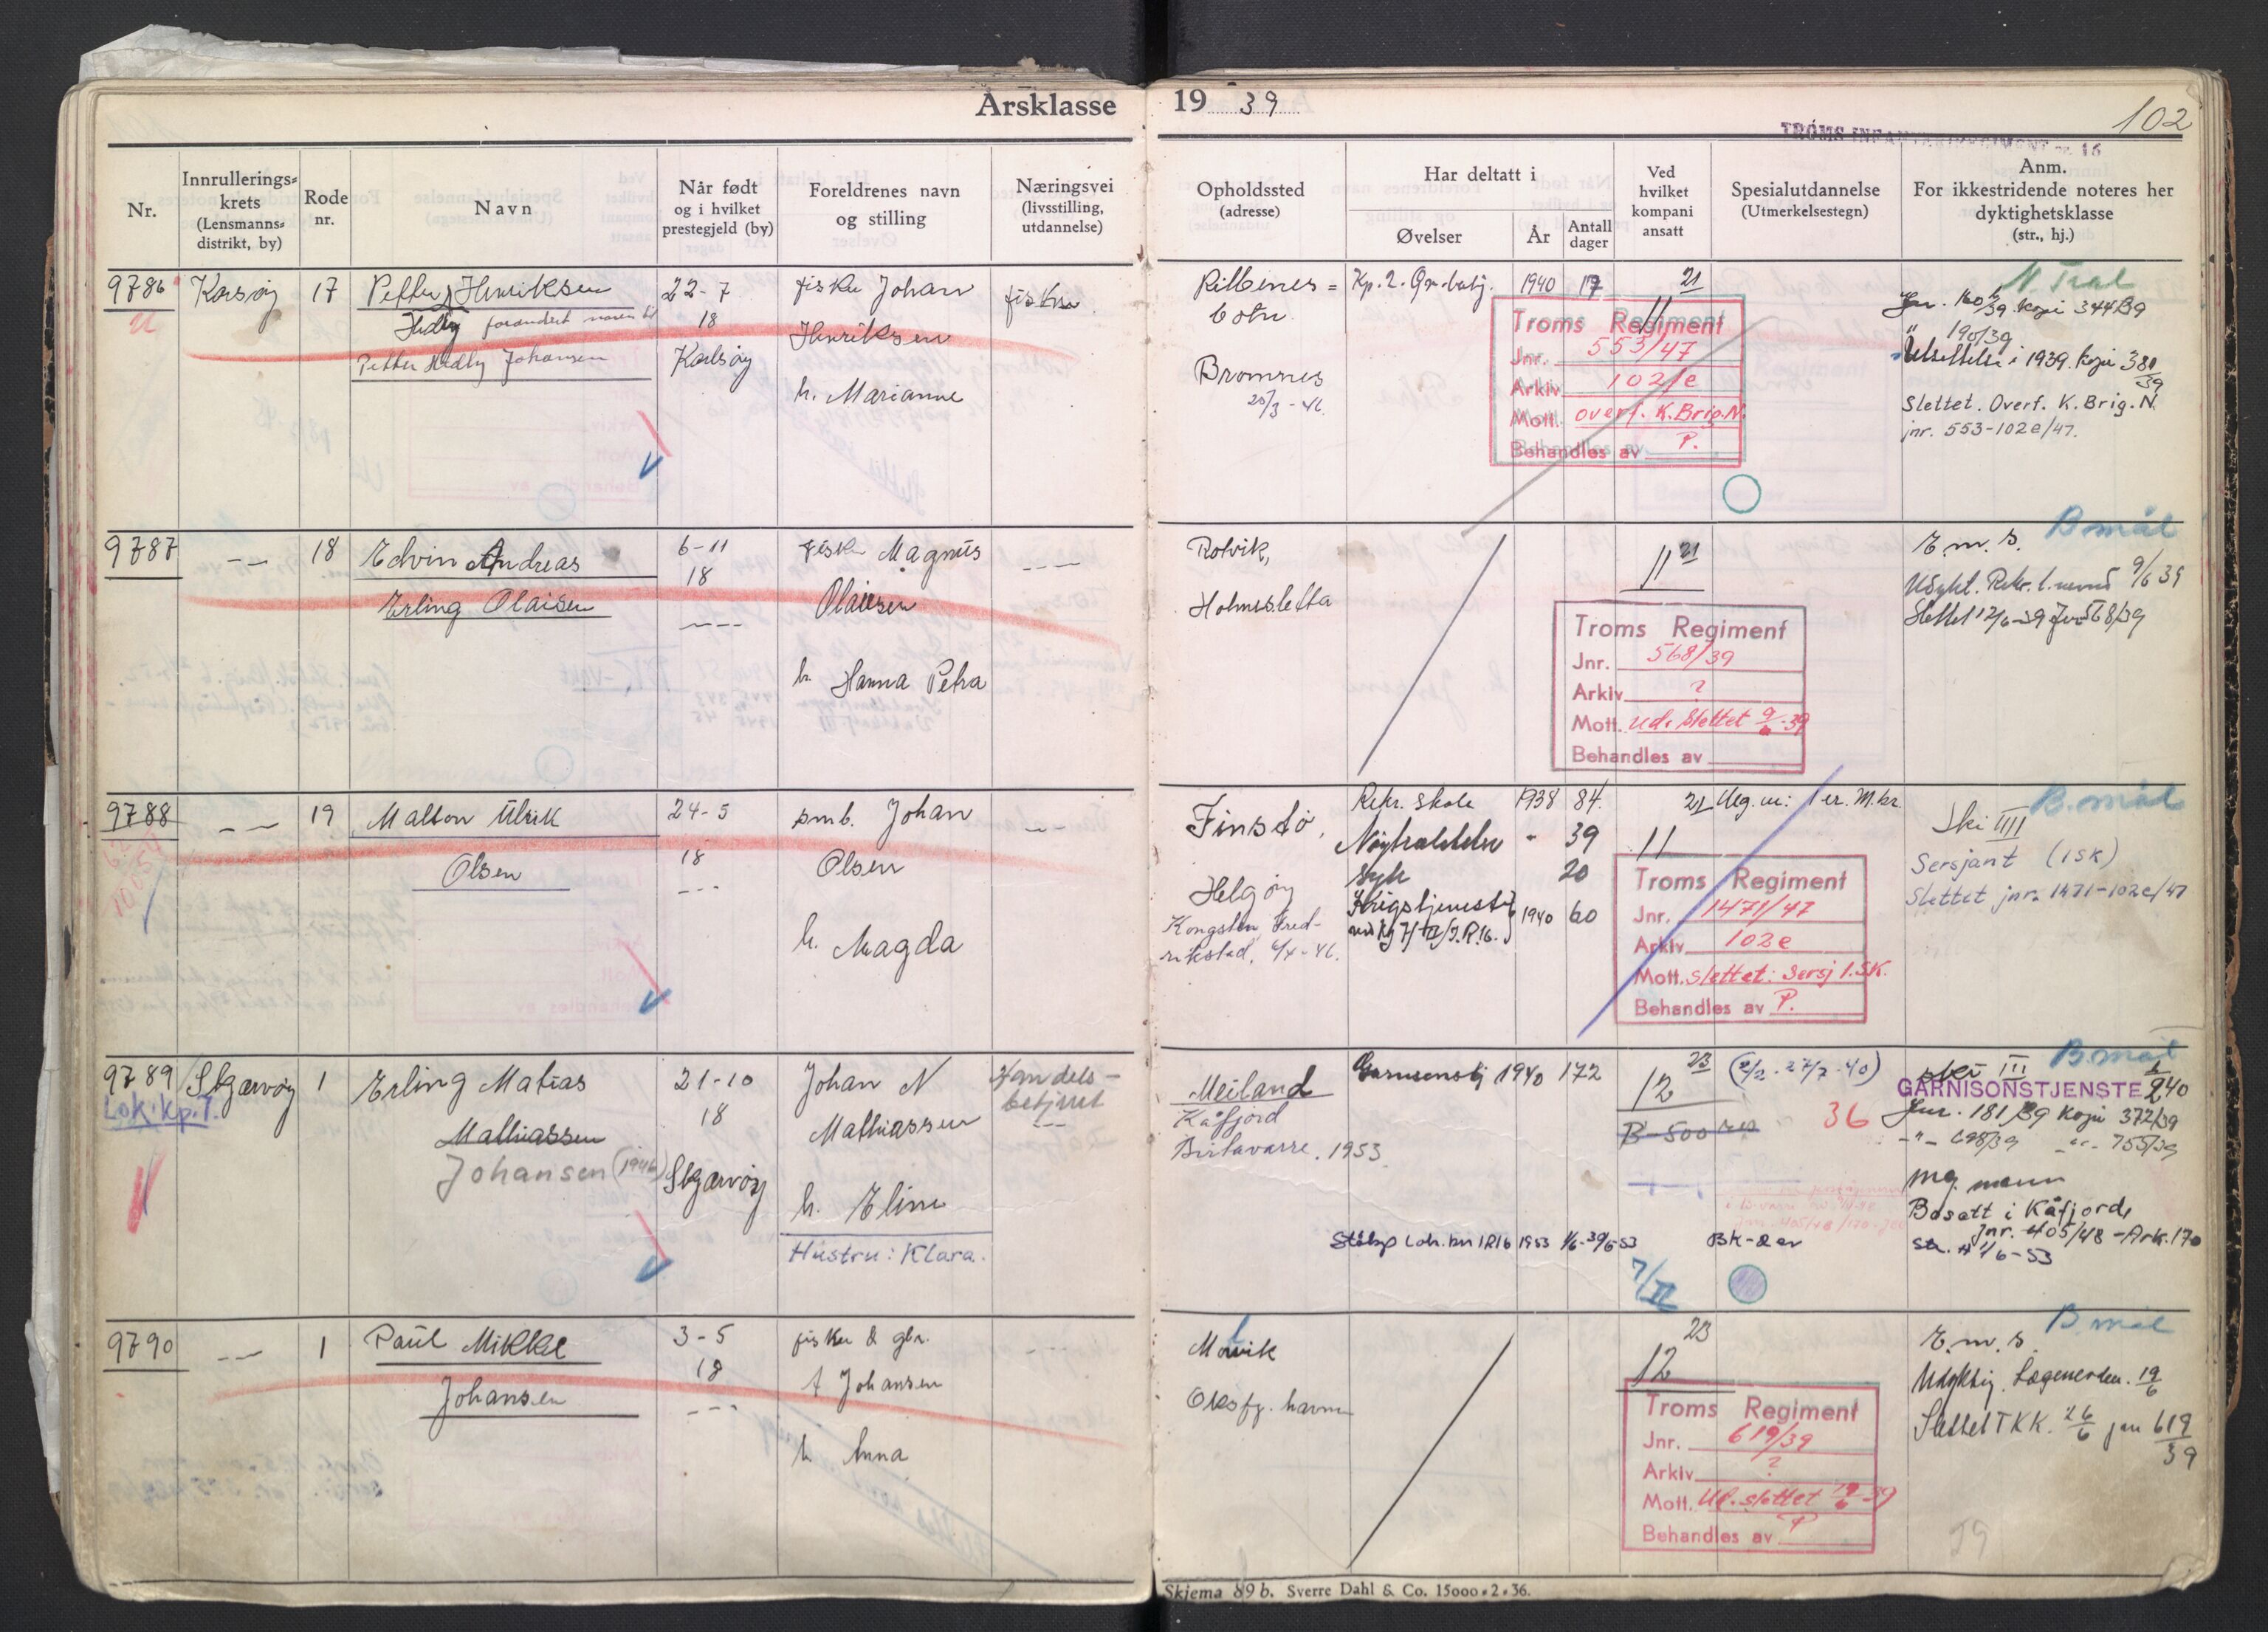 Årsklasse 19 39
102
TROMS INFANTERIREGIMENT nr. 16
Nr.
Innrullerings-
krets
(Lensmanns-
distrikt, by)
Rode
nr.
Navn
Når født
og i hvilket
prestegjeld (by)
Foreldrenes navn
og stilling
Næringsvei
(livsstilling,
utdannelse)
Opholdssted
(adresse)
Har deltatt i
Øvelser
År
Antall
dager
Ved
hvilket
kompani
ansatt
Spesialutdannelse
(Utmerkelsestegn)
Anm.
For ikkestridende noteres her
dyktighetsklasse
(str., hj.)
9786
Karlsøy
17
Petter Henriksen
Hedly forandret navn til
Petter Hedly Johansen
22-7
18
Karlsøy
fisker Johan
Henriksen
h. Marianne
fisker
Ribbenes=
botn
Bromnes
20/3-46.
Kp. 2. Gr.batj.
1940
17
21
11
Troms Regiment
Jnr. 553/47
Arkiv 102/e
Mott. overf. K.Brig.N.
Behandles av P.
N. Tral
Jnr. 160/39 kopi 344/39
" 190/39
Utsettelse i 1939. kopi 381/39
Slettet. Overf. K. Brig. N.
jnr. 553-102e/47.
9787
18
Edvin Andreas
Erling Olaisen
6-11
18
fisker Magnus
Olaisen
h. Hanna Petra
Rotvik,
Holmesletta
11 21
Troms Regiment
Jnr. 568/39
Arkiv ?
Mott. ud. slettet 9/6-39
Behandles av
B mål
E. m. s.
Udykt. Rekr. l. nevnd 9/6 39
Slettet 12/6-39 Jnr 568/39
9788
19
Malton Ulrik
Olsen
24-5
18
smb. Johan
Olsen
h. Magda
Finstø,
Helgøy
Kongsten, Fred-
rikstad, 6/4-46.
Rekr. skole 1938 84.
Nøytralitetsv. " 39
syk 20
Krigstjeneste
1940 60
21
11
Troms Regiment
Jnr. 1471/47
Arkiv 102e
Mott. slettet: sersj 1.SK.
Behandles av P.
B. mål
Ski III
Sersjant (1SK)
Slettet jnr. 1471-102e/47
9789
Lok.kp.7.
Skjervøy
1
Erling Matias
Mathiassen
Johansen (1946)
21-10
18
Skjervøy
Johan N
Mathiassen
h. Eline
Hustru: Klara.
Handels-
betjent
Meiland
Kåfjord
Birtavarre. 1953
Garnisonstj 1940 172
23
12
(2/2-27/7-40)
B-500
36
1953 1/6-30/6 53
BK-2 er
7/II
B. mål
ski III
GARNISONSTJENESTE
Jnr. 181/39 kopi 372/39
-"- 698/39 -"- 755/39
mg. mann
Bosatt i Kåfjord,
Jnr. 405/48-Ark.170
9790
1
Paul Mikkel
Johansen
3-5
18
fisker & gbr.
A Johansen
h Anna
Oksfj. havn
23
12
Troms Regiment
Jnr. 619/39
Arkiv ?
Mott. Ud. slettet 19/6-39
Behandles av P
B. mål
E. m. s.
Udyktig. Lægenevden. 19/6
Slettet TKK. 26/6 jnr 619/39
Skjema 89 b. Sverre Dahl & Co. 15000.2.36.